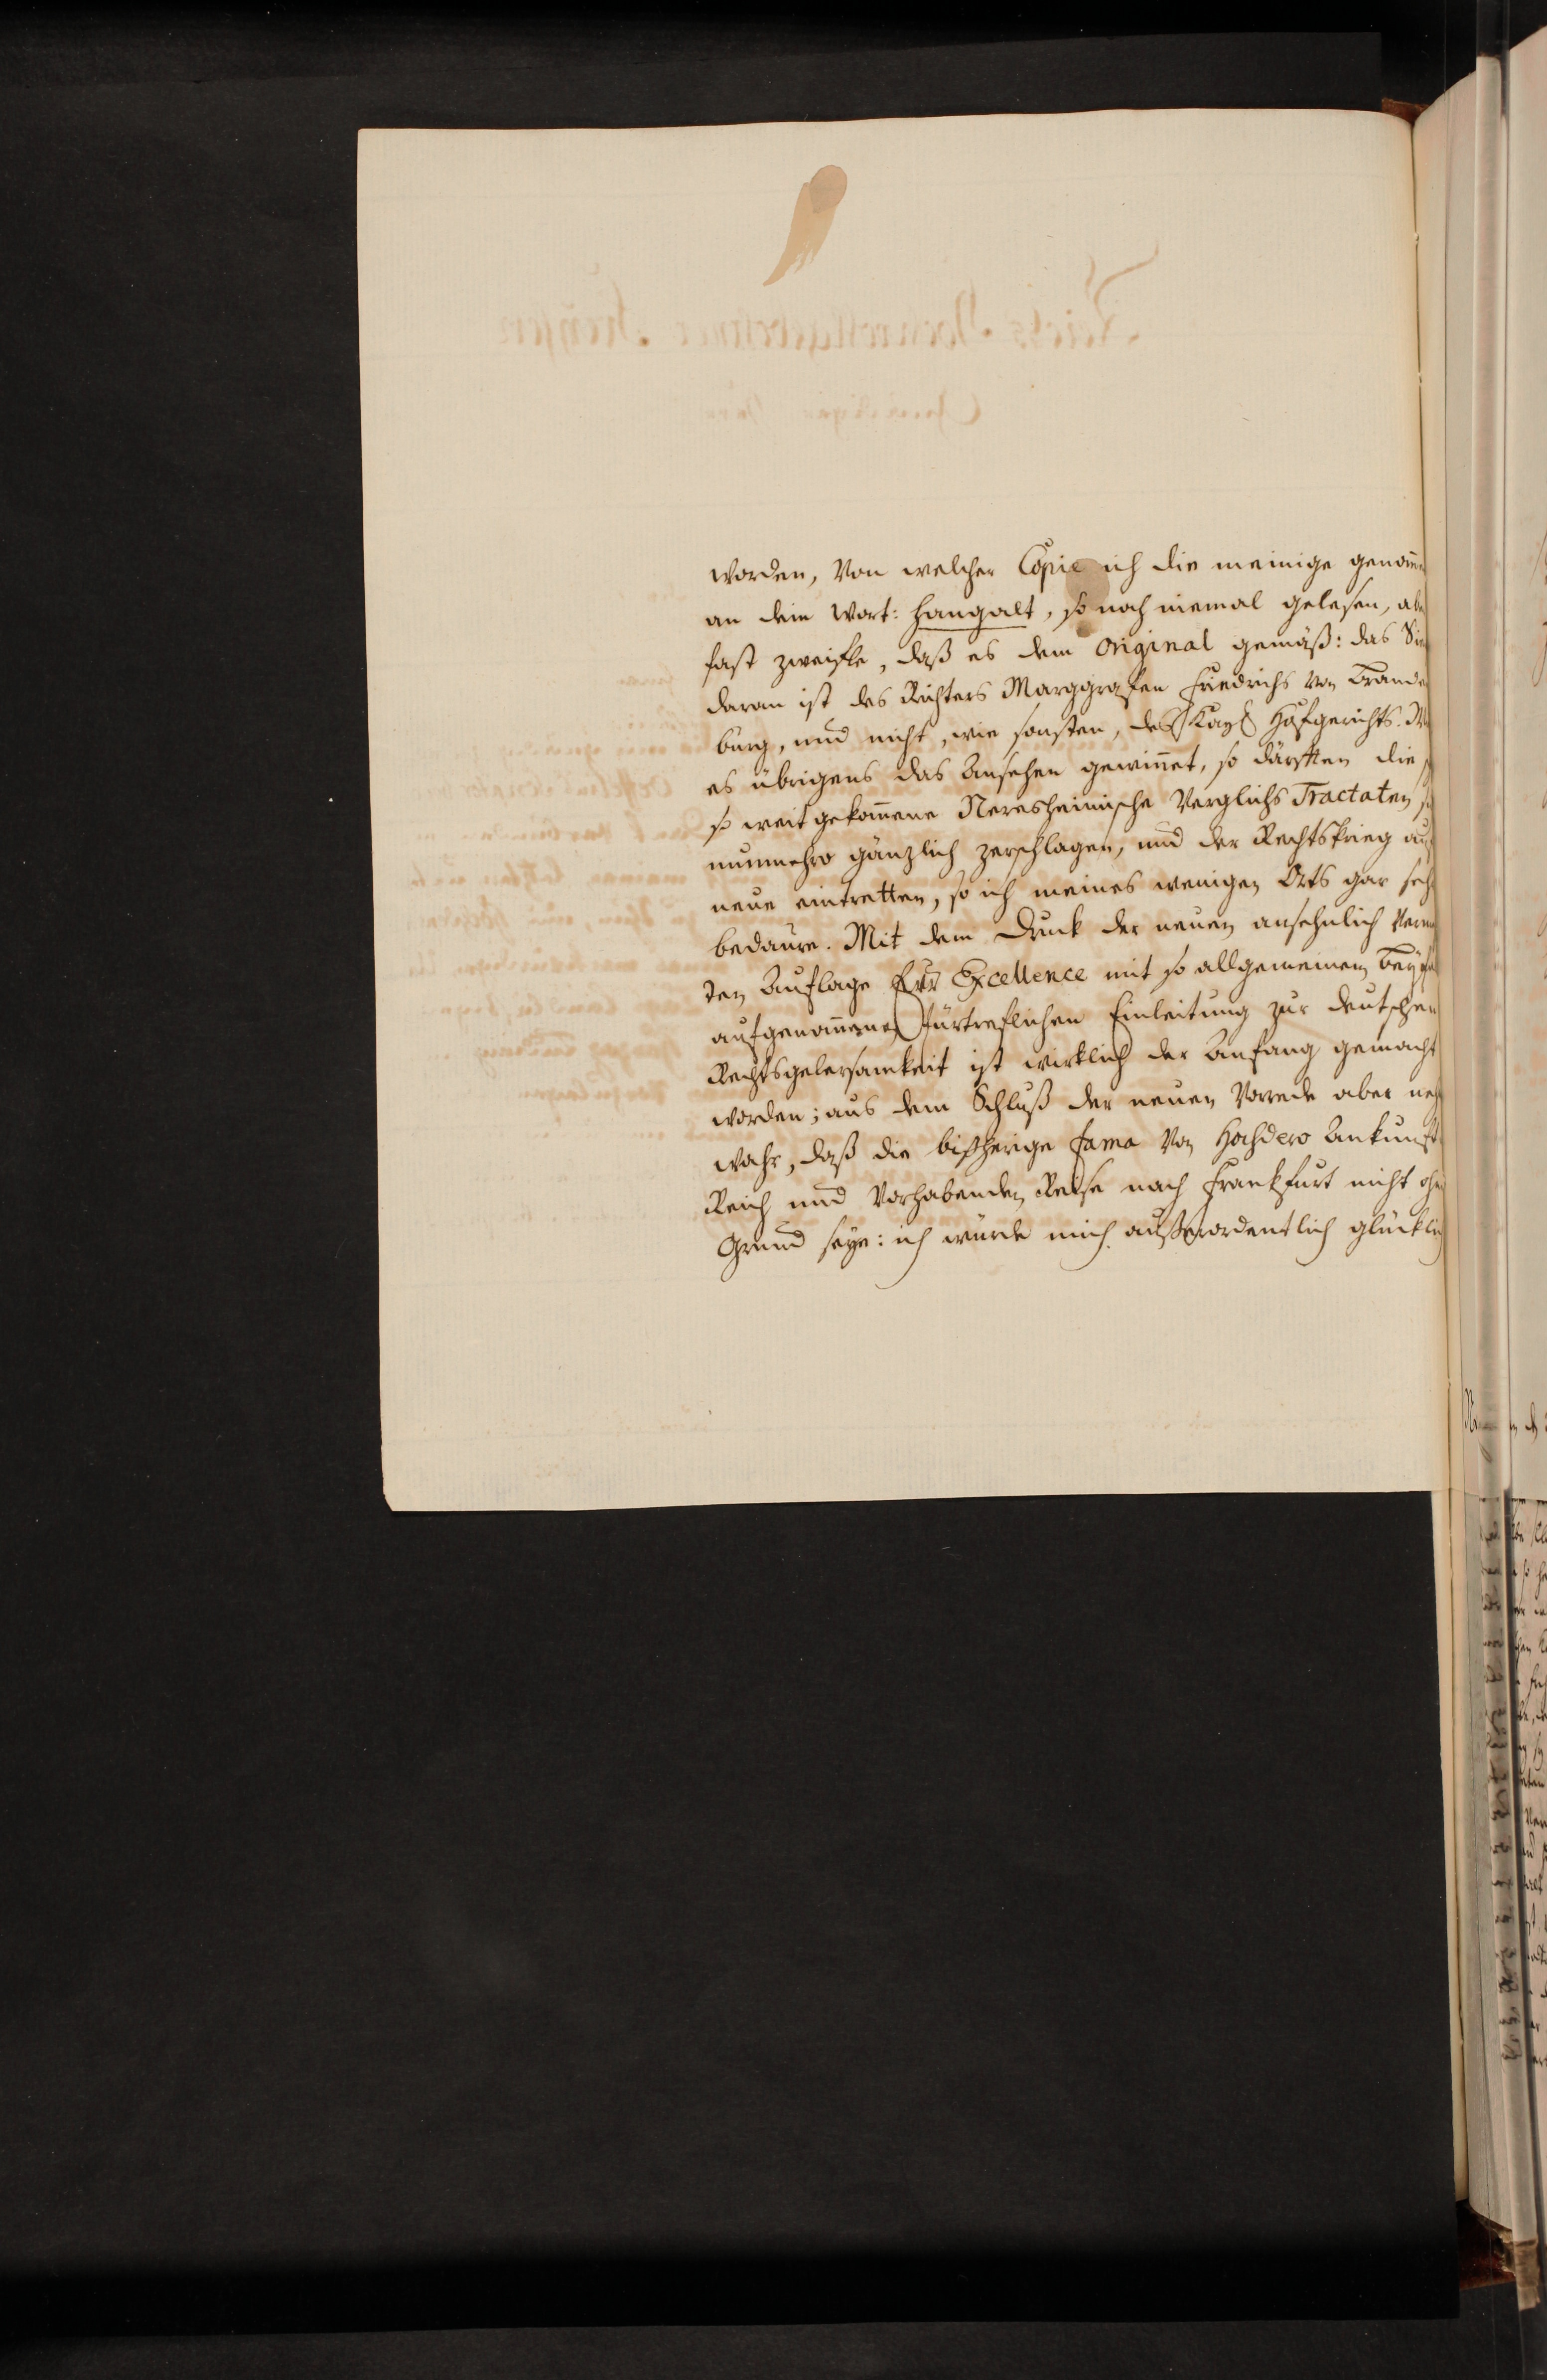 worden, von welcher Copie ich die meinige genom̄en
an dem Wort: Hangalt, so noch niemal gelesen, aber
fast zweifle, daß es dem Original gemäß: das
daran ist des Richters Marggrafen Friedrichs von Branden
burg, und nicht, wie sonsten, deß Kayß Hofgerichts.
es übrigens das Ansehen gewinnet, so därfften die
so weit gekom̄ene Neresheimische Verglichs Tractaten
nunmehro gänzlich zerschlagen, und der Rechtskrieg auf
neue eintretten, so ich meines wenigen Orts gar sehr
bedaure. Mit dem Druck der neuen ansehnlich
ten Auflage Eur Excellence mit so allgemeinem
aufgenom̄enen fürtreflichen Einleitung zur deutschen
Rechtsgelersamkeit ist wirklich der Anfang gemacht
worden; aus dem Schluß der neuen Vorrede aber
wahr, daß die bißherige fama von Hochdero Ankunft
Reich und vorhabenden Reise nach Frankfurt nicht ohne
Grund seye: ich würde mich außerordentlich glücklich